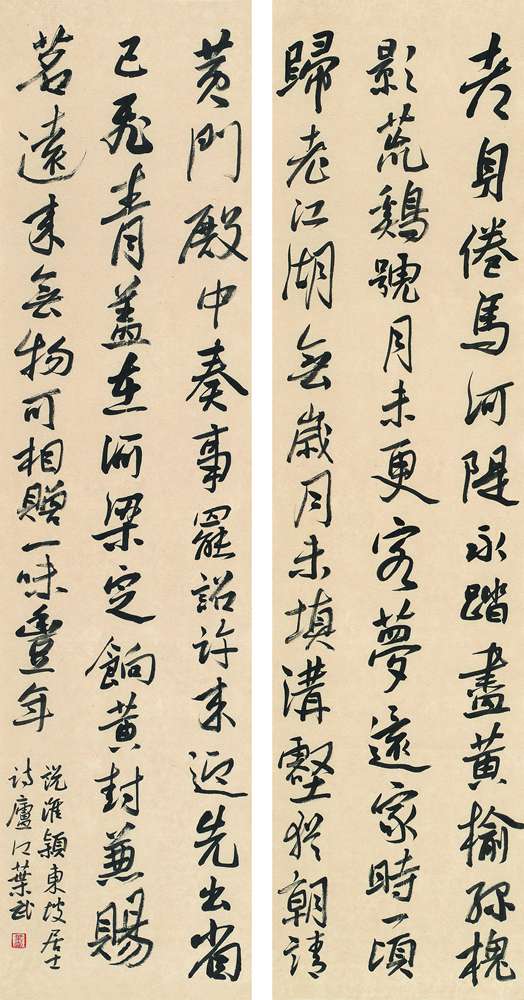 老身倦馬河隄永踏盡黃榆綠槐
影荒鷄號月未更客夢還家時一頃
歸老江湖無歲月未填溝壑猶朝請
黃門殿中奏事罷詔許來迎先出省
已飛青蓋在河梁定餉黃封兼賜
茗遠來無物可相贈一味豐年
說淮潁東坡居士
詩廬江葉武